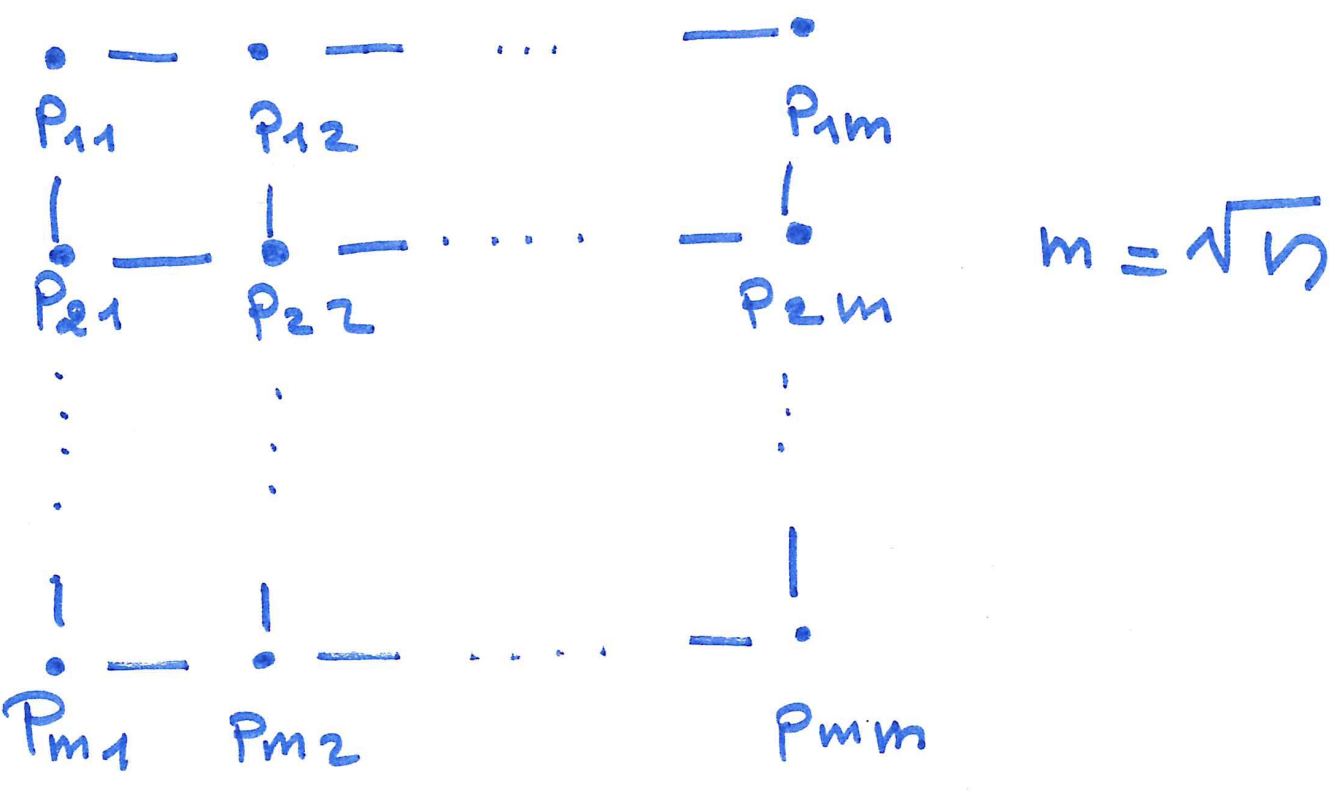 P11 P12 ... P1m
P21 P22 .... P2m
m = √n
Pm1 Pm2 .... Pmm